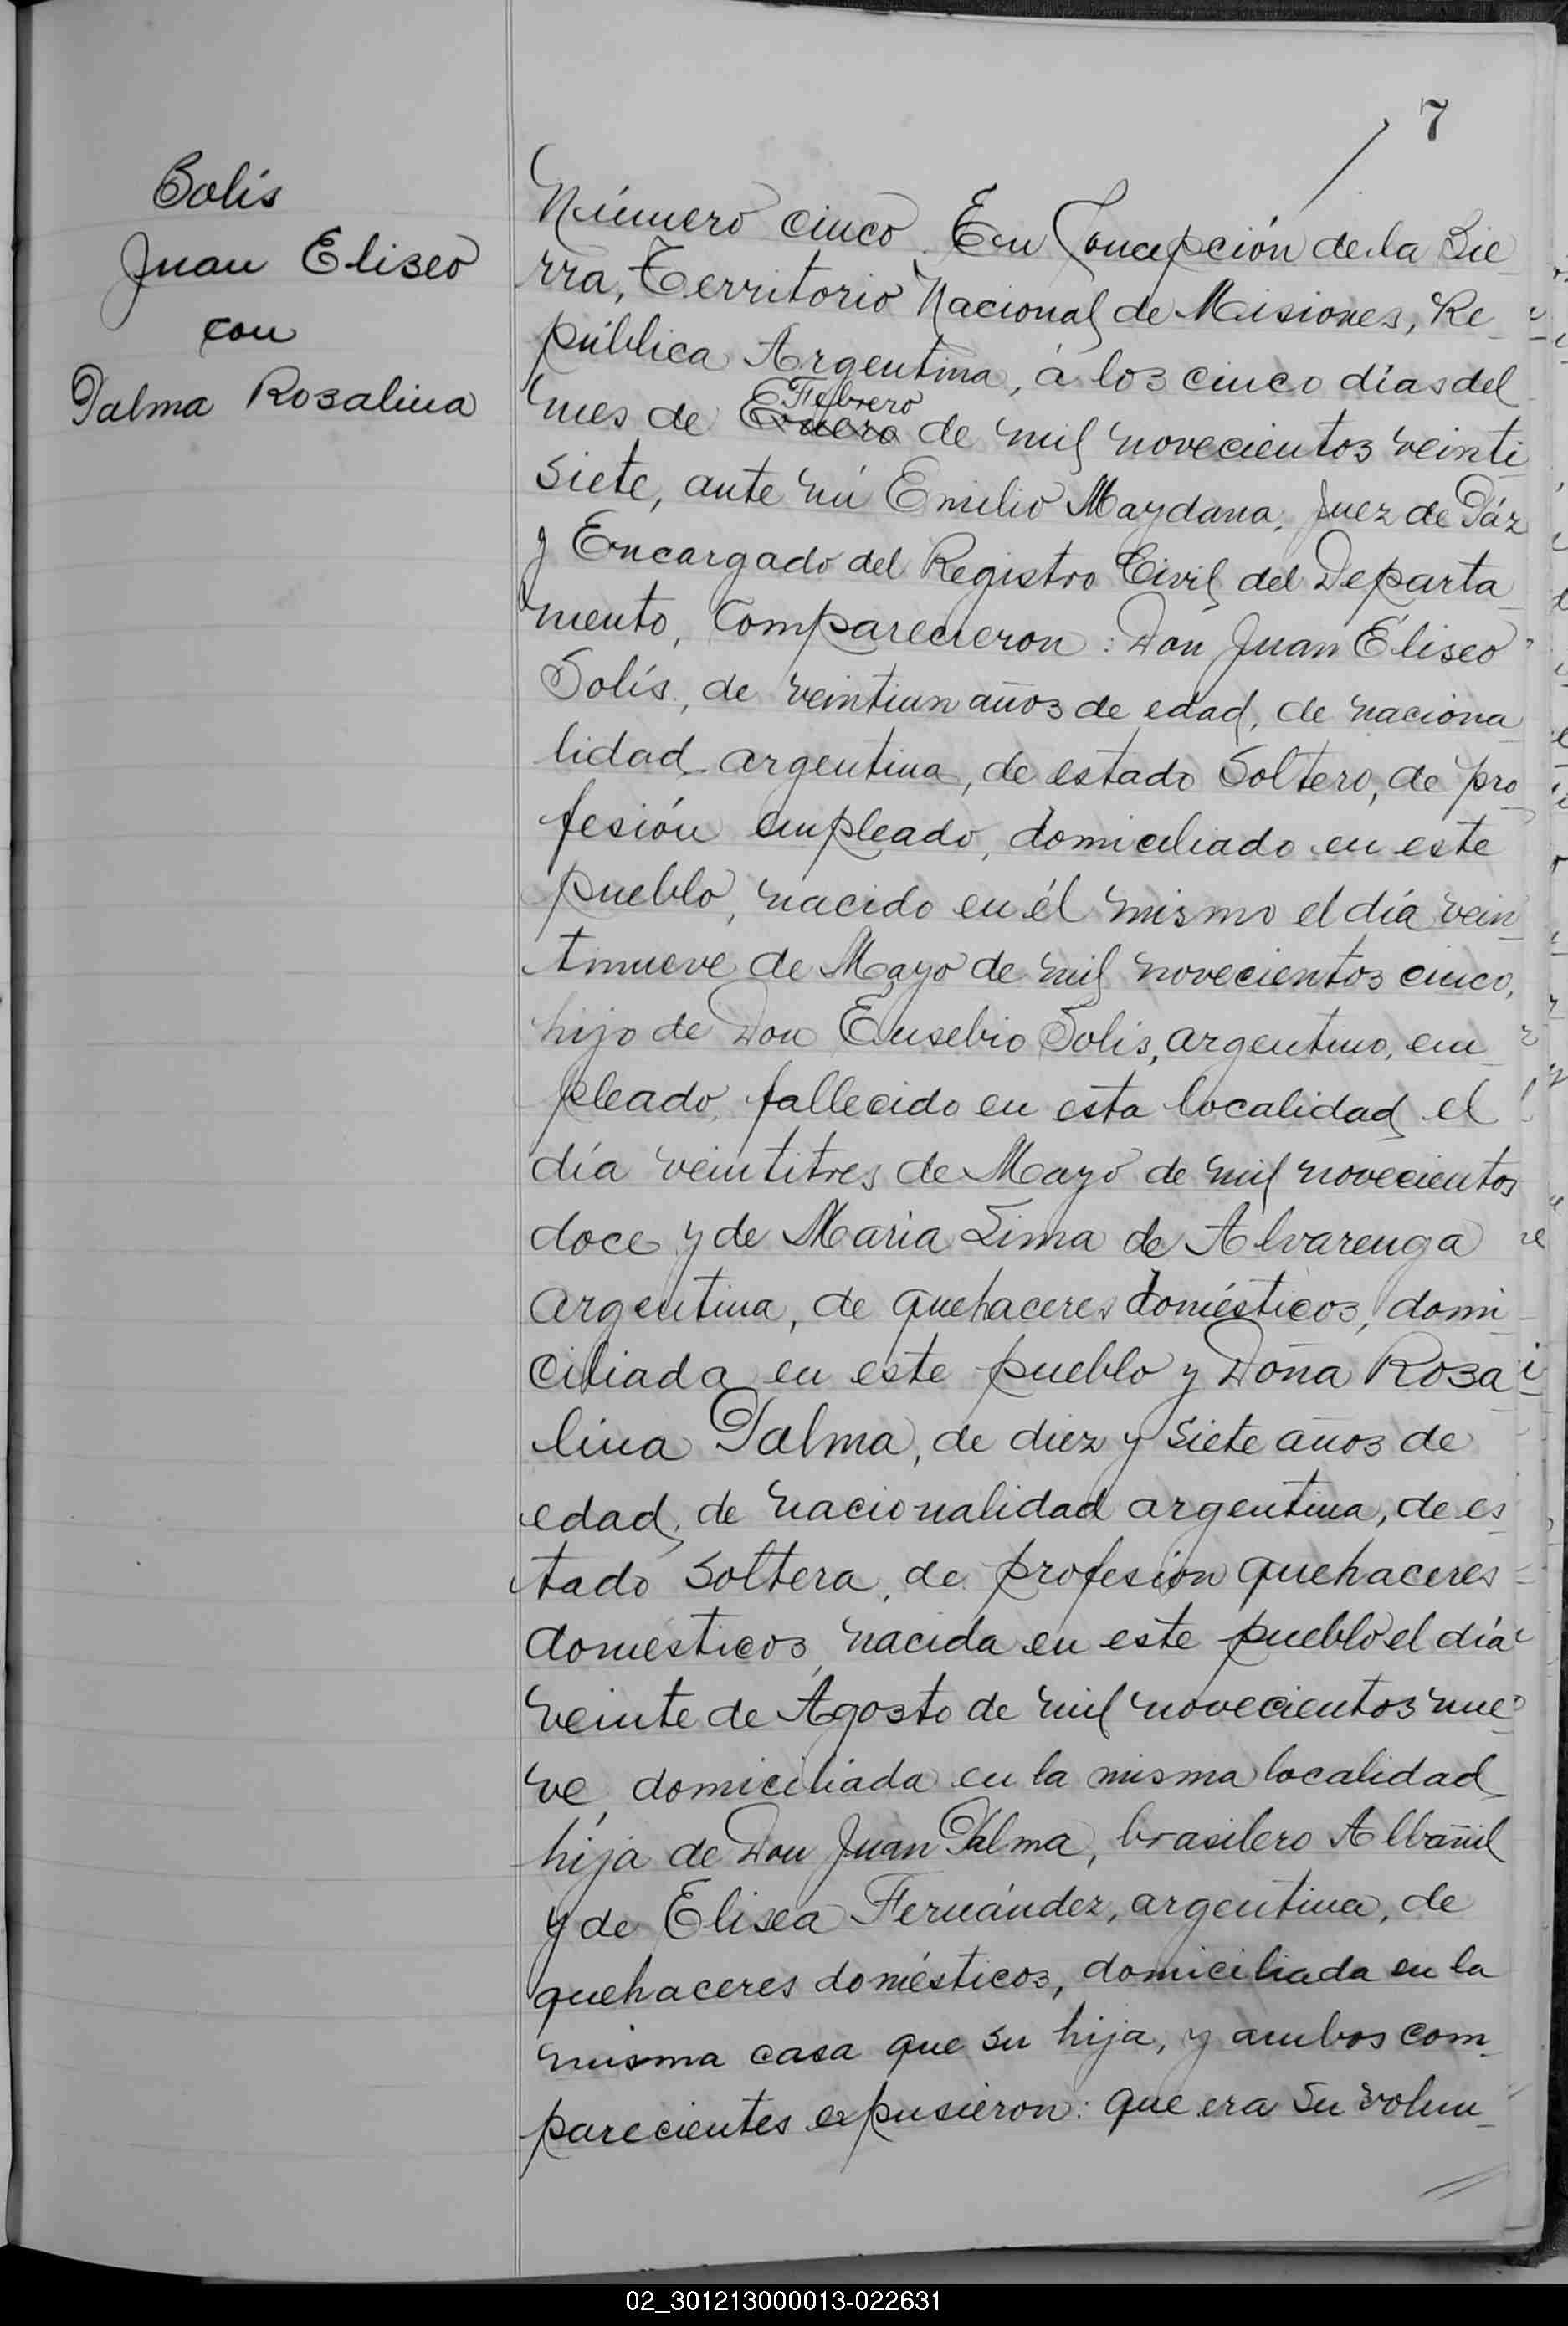 7
Solís
Juan Eliseo
con
Palma Rosalina
Número cinco. En Concepción de la Sie
rra, Territorio Nacional de Misiones, Re
pública Argentina, á los cinco días del
Febrero
mes de Enero de mil novecientos veinti
siete, ante mi Emilio Maydana, Juez de Páz
y Encargado del Registro Civil del Departa
mento, Comparecieron: Don Juan Eliseo
Solís, de veintiun años de edad, de naciona
lidad argentina, de estado Soltero, de pro
fesión empleado, domiciliado en este
pueblo, nacido en él mismo el día vein
tinueve de Mayo de mil novecientos cinco,
hijo de Don Eusebio Solis, argentino, em
pleado, fallecido en esta localidad el
día veintitres de Mayo de mil novecientos
doce y de Maria Lima de Alvarenga
argentina, de quehaceres domésticos, domi
ciliada en este pueblo y Doña Rosa
lina Palma, de diez y siete años de
edad, de nacionalidad argentina, de es
tado Soltera, de profesion quehaceres
domésticos, nacida en este pueblo el día
veinte de Agosto de mil novecientos nue
ve, domiciliada en la misma localidad
hija de Don Juan Palma, brasilero Albañil
y de Elisea Fernández, argentina, de
quehaceres domésticos, domiciliada en la
misma casa que su hija, y ambos com
parecientes expusieron: que era su volun
02_301213000013-022631